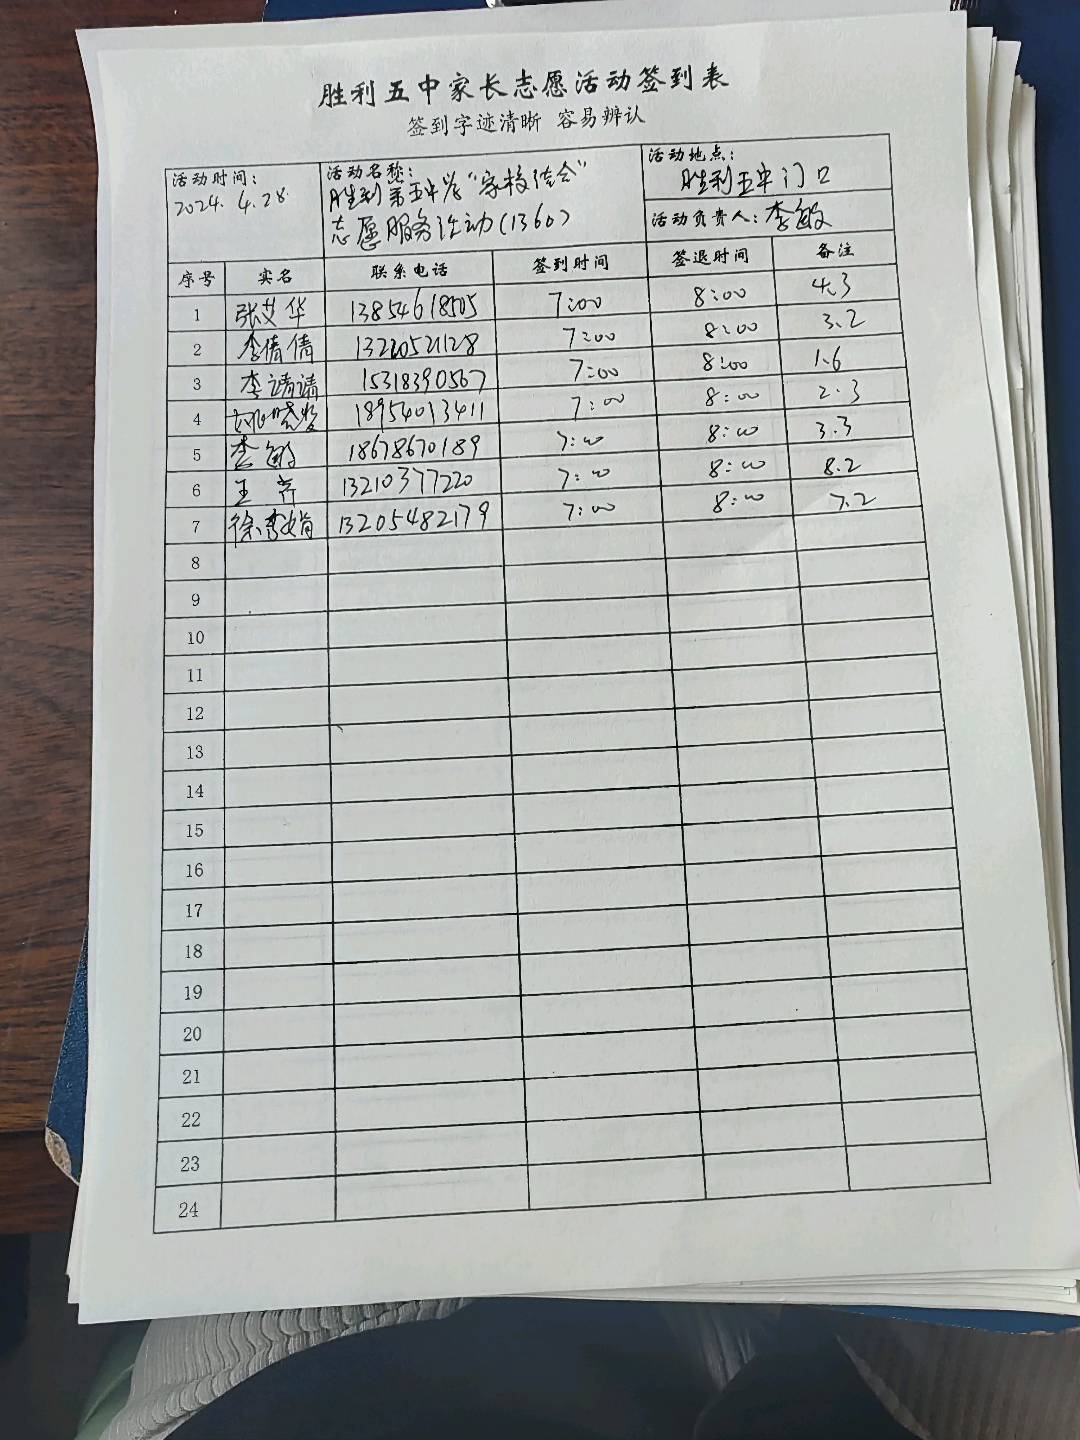 胜利五中家长志愿活动签到表
签到字迹清晰 容易辨认
活动时间：
2024.4.28
活动名称：
胜利第五中学“家校结合”
志愿服务活动(1360)
活动地点：
胜利五中门口
活动负责人：李敏
序号 实名 联系电话 签到时间 签退时间 备注
1 张艾华 13854618505 7:00 8:00 4.3
2 李倩倩 13220521128 7:00 8:00 3.2
3 李靖靖 15318390567 7:00 8:00 1.6
4 18954013411 7:00 8:00 2.3
5 李敏 18678670189 7:00 8:00 3.3
6 王齐 13210377220 7:00 8:00 8.2
7 徐秀娟 13205482179 7:00 8:00 7.2
8
9
10
11
12
13
14
15
16
17
18
19
20
21
22
23
24